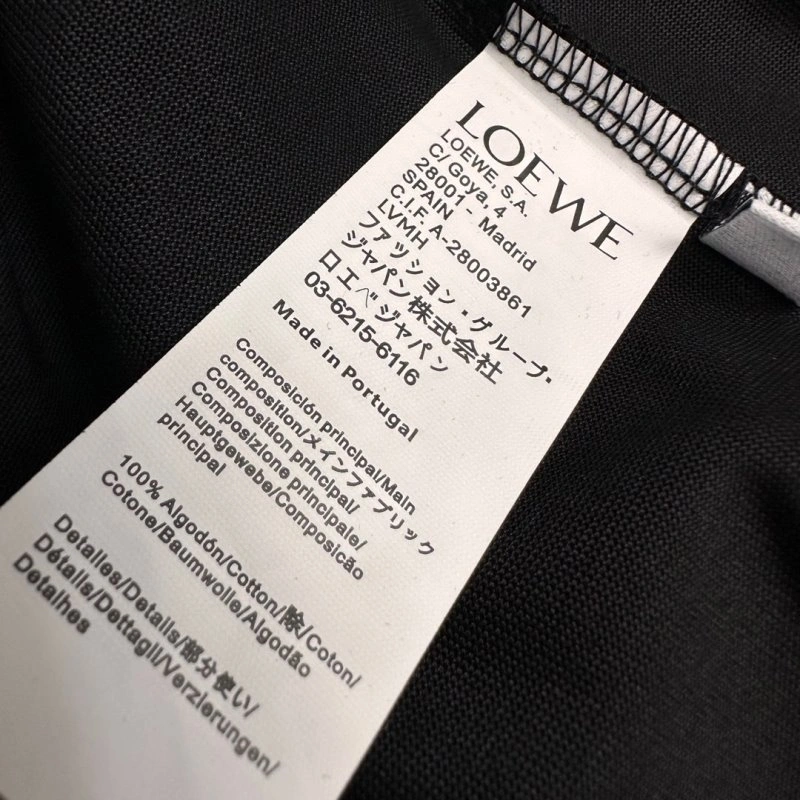 LOEWE
LOEWE, S.A.
C/ Goya, 4
28001 - Madrid
SPAIN
C.I.F. A-28003861
LVMH
ファッション・グループ・
ジャパン株式会社
ロエベジャパン
03-6215-6116
Made in Portugal
Composición principal/Main
composition/メインファブリック
Composition principal/
Composizione principale/
Hauptgewebe/Composicão
principal
100% Algodón/Cotton/除/Coton/
Cotone/Baumwolle/Algodão
Detalles/Details/部分使い/
Détails/Dettagli/Verzierungen/
Detalhes